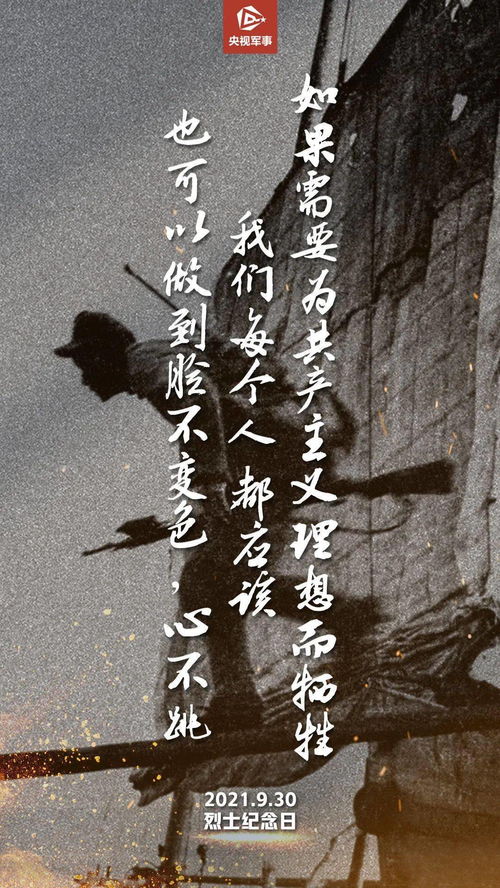 央视军事
如果需要为共产主义理想而牺牲
我们每个人都应该
也可以做到脸不变色,心不跳
2021.9.30
烈士纪念日